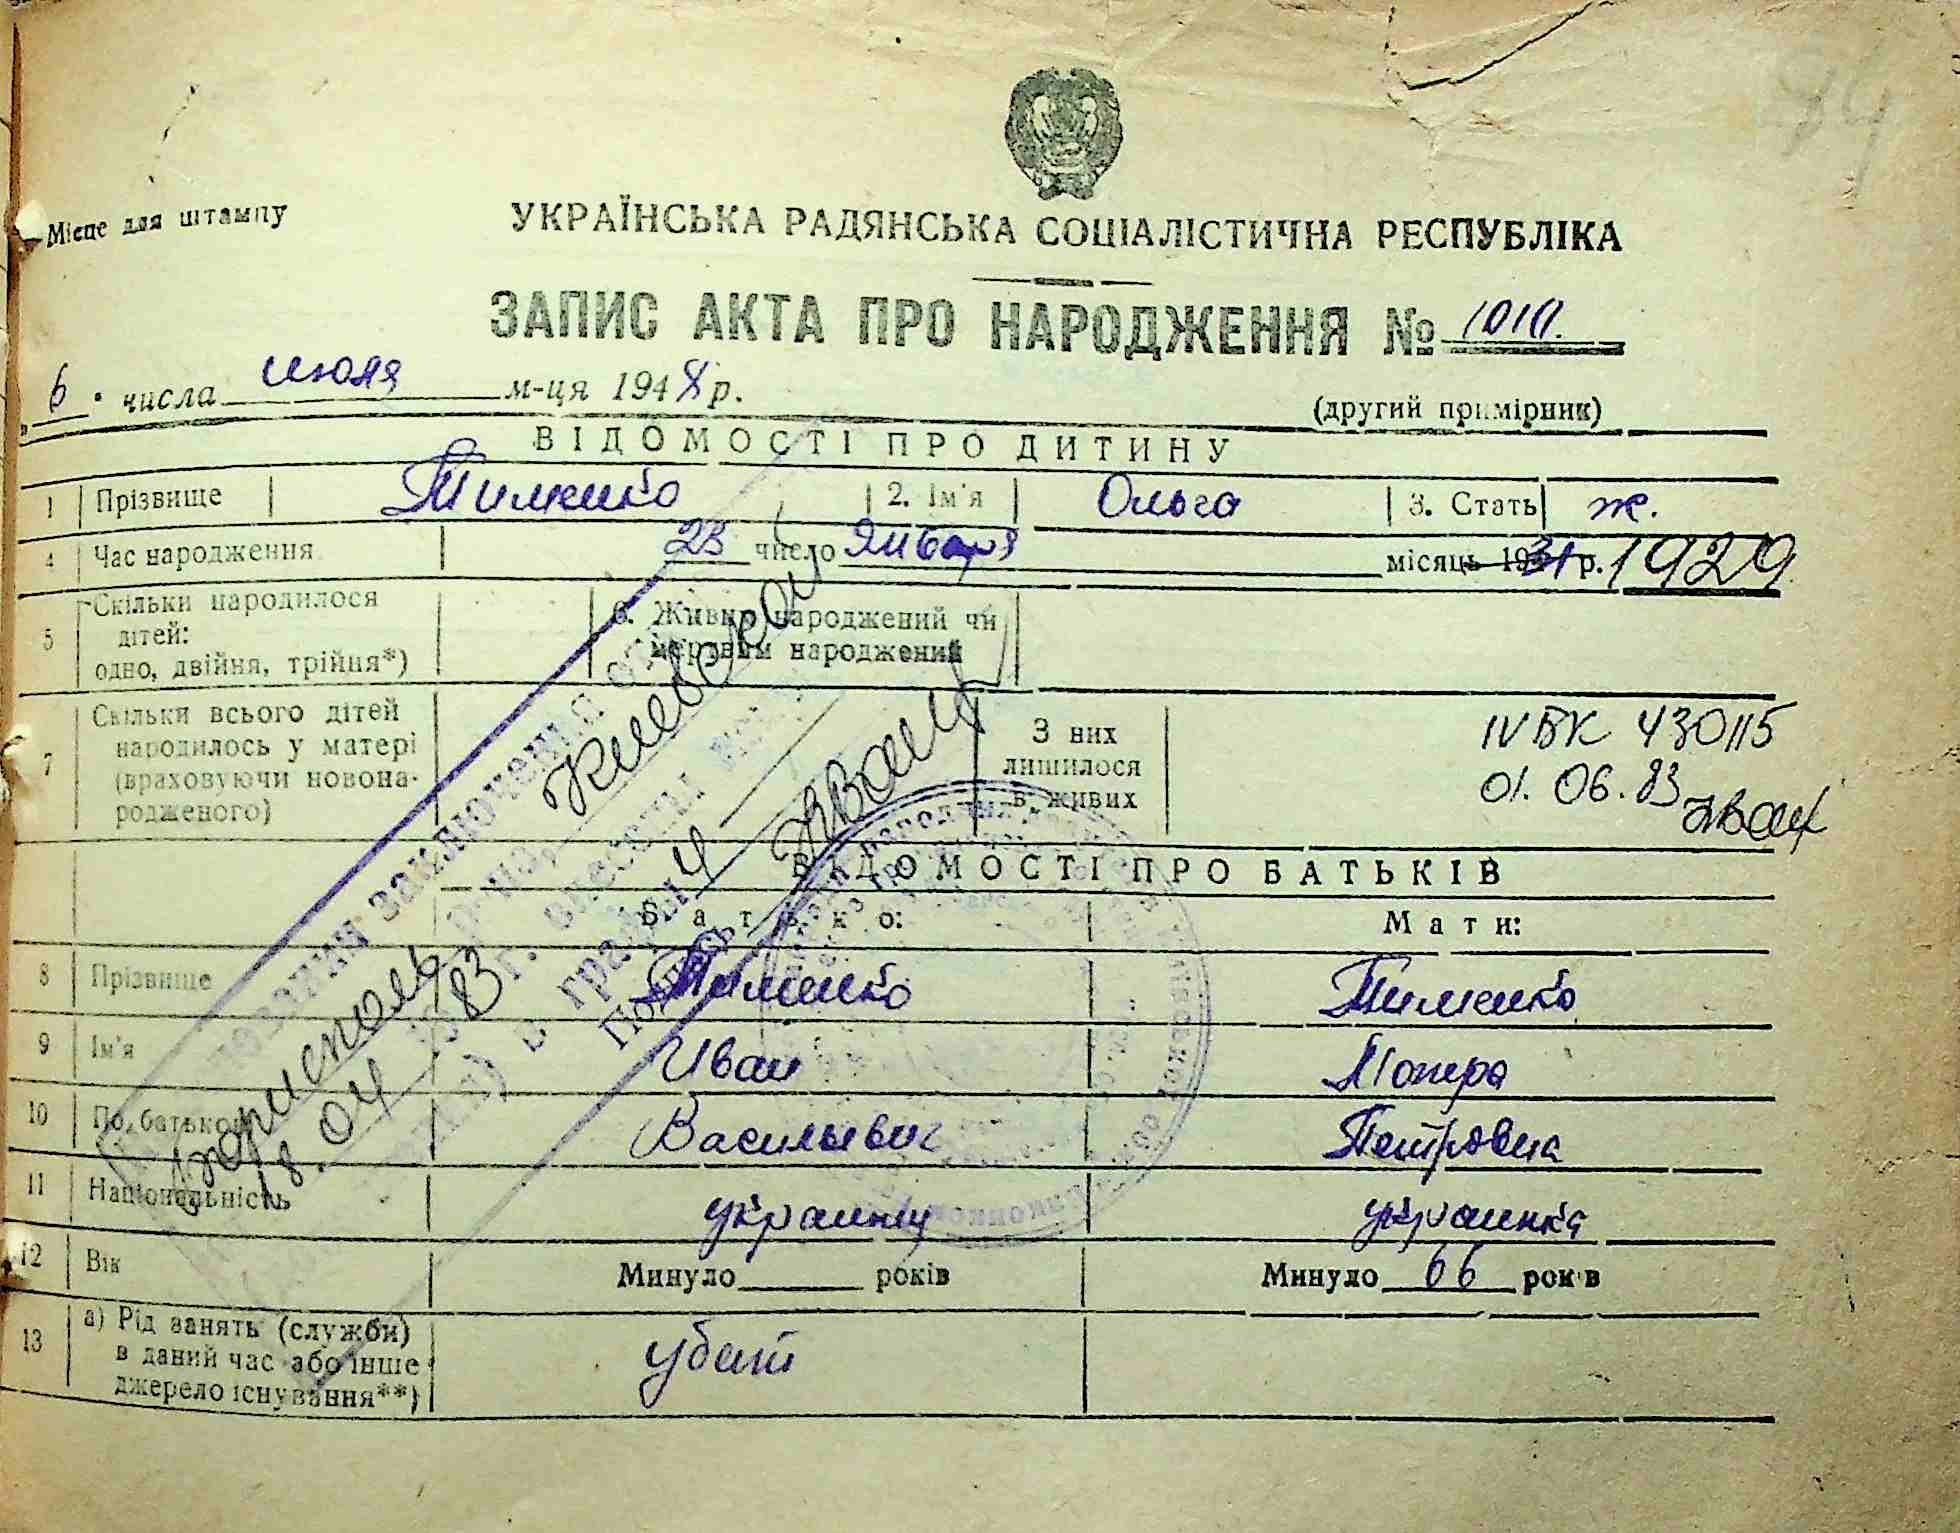 94
Місце для штампу
УКРАЇНСЬКА РАДЯНСЬКА СОЦІАЛІСТИЧНА РЕСПУБЛІКА
ЗАПИС АКТА ПРО НАРОДЖЕННЯ № 1010.
„ 6 " числа июля м-ця 1948 р.
(другий примірник)
ВІДОМОСТІ ПРО ДИТИНУ
1 Прізвище Тименко 2. Ім'я Ольга 3. Стать ж.
4 Час народження 23 число Января місяць 1931 р. 1929
5 Скільки народилося дітей: одно, двійня, трійня*) 6. Живим народжений чи мертвим народжений
7 Скільки всього дітей народилось у матері (враховуючи новонародженого) З них лишилося в живих
IV БК 430115
01. 06. 83
ВІДОМОСТІ ПРО БАТЬКІВ
Батько: Мати:
8 Прізвище Тименко Тименко
9 Ім'я Иван
10 По батькові Васильевич Петровна
11 Національність украинец украинка
12 Вік Минуло років Минуло 66 років
13 а) Рід занять (служби) в даний час або інше джерело існування**) убит
заключения
Киевской
18. 04 83 г.
в графы 4
Подпись